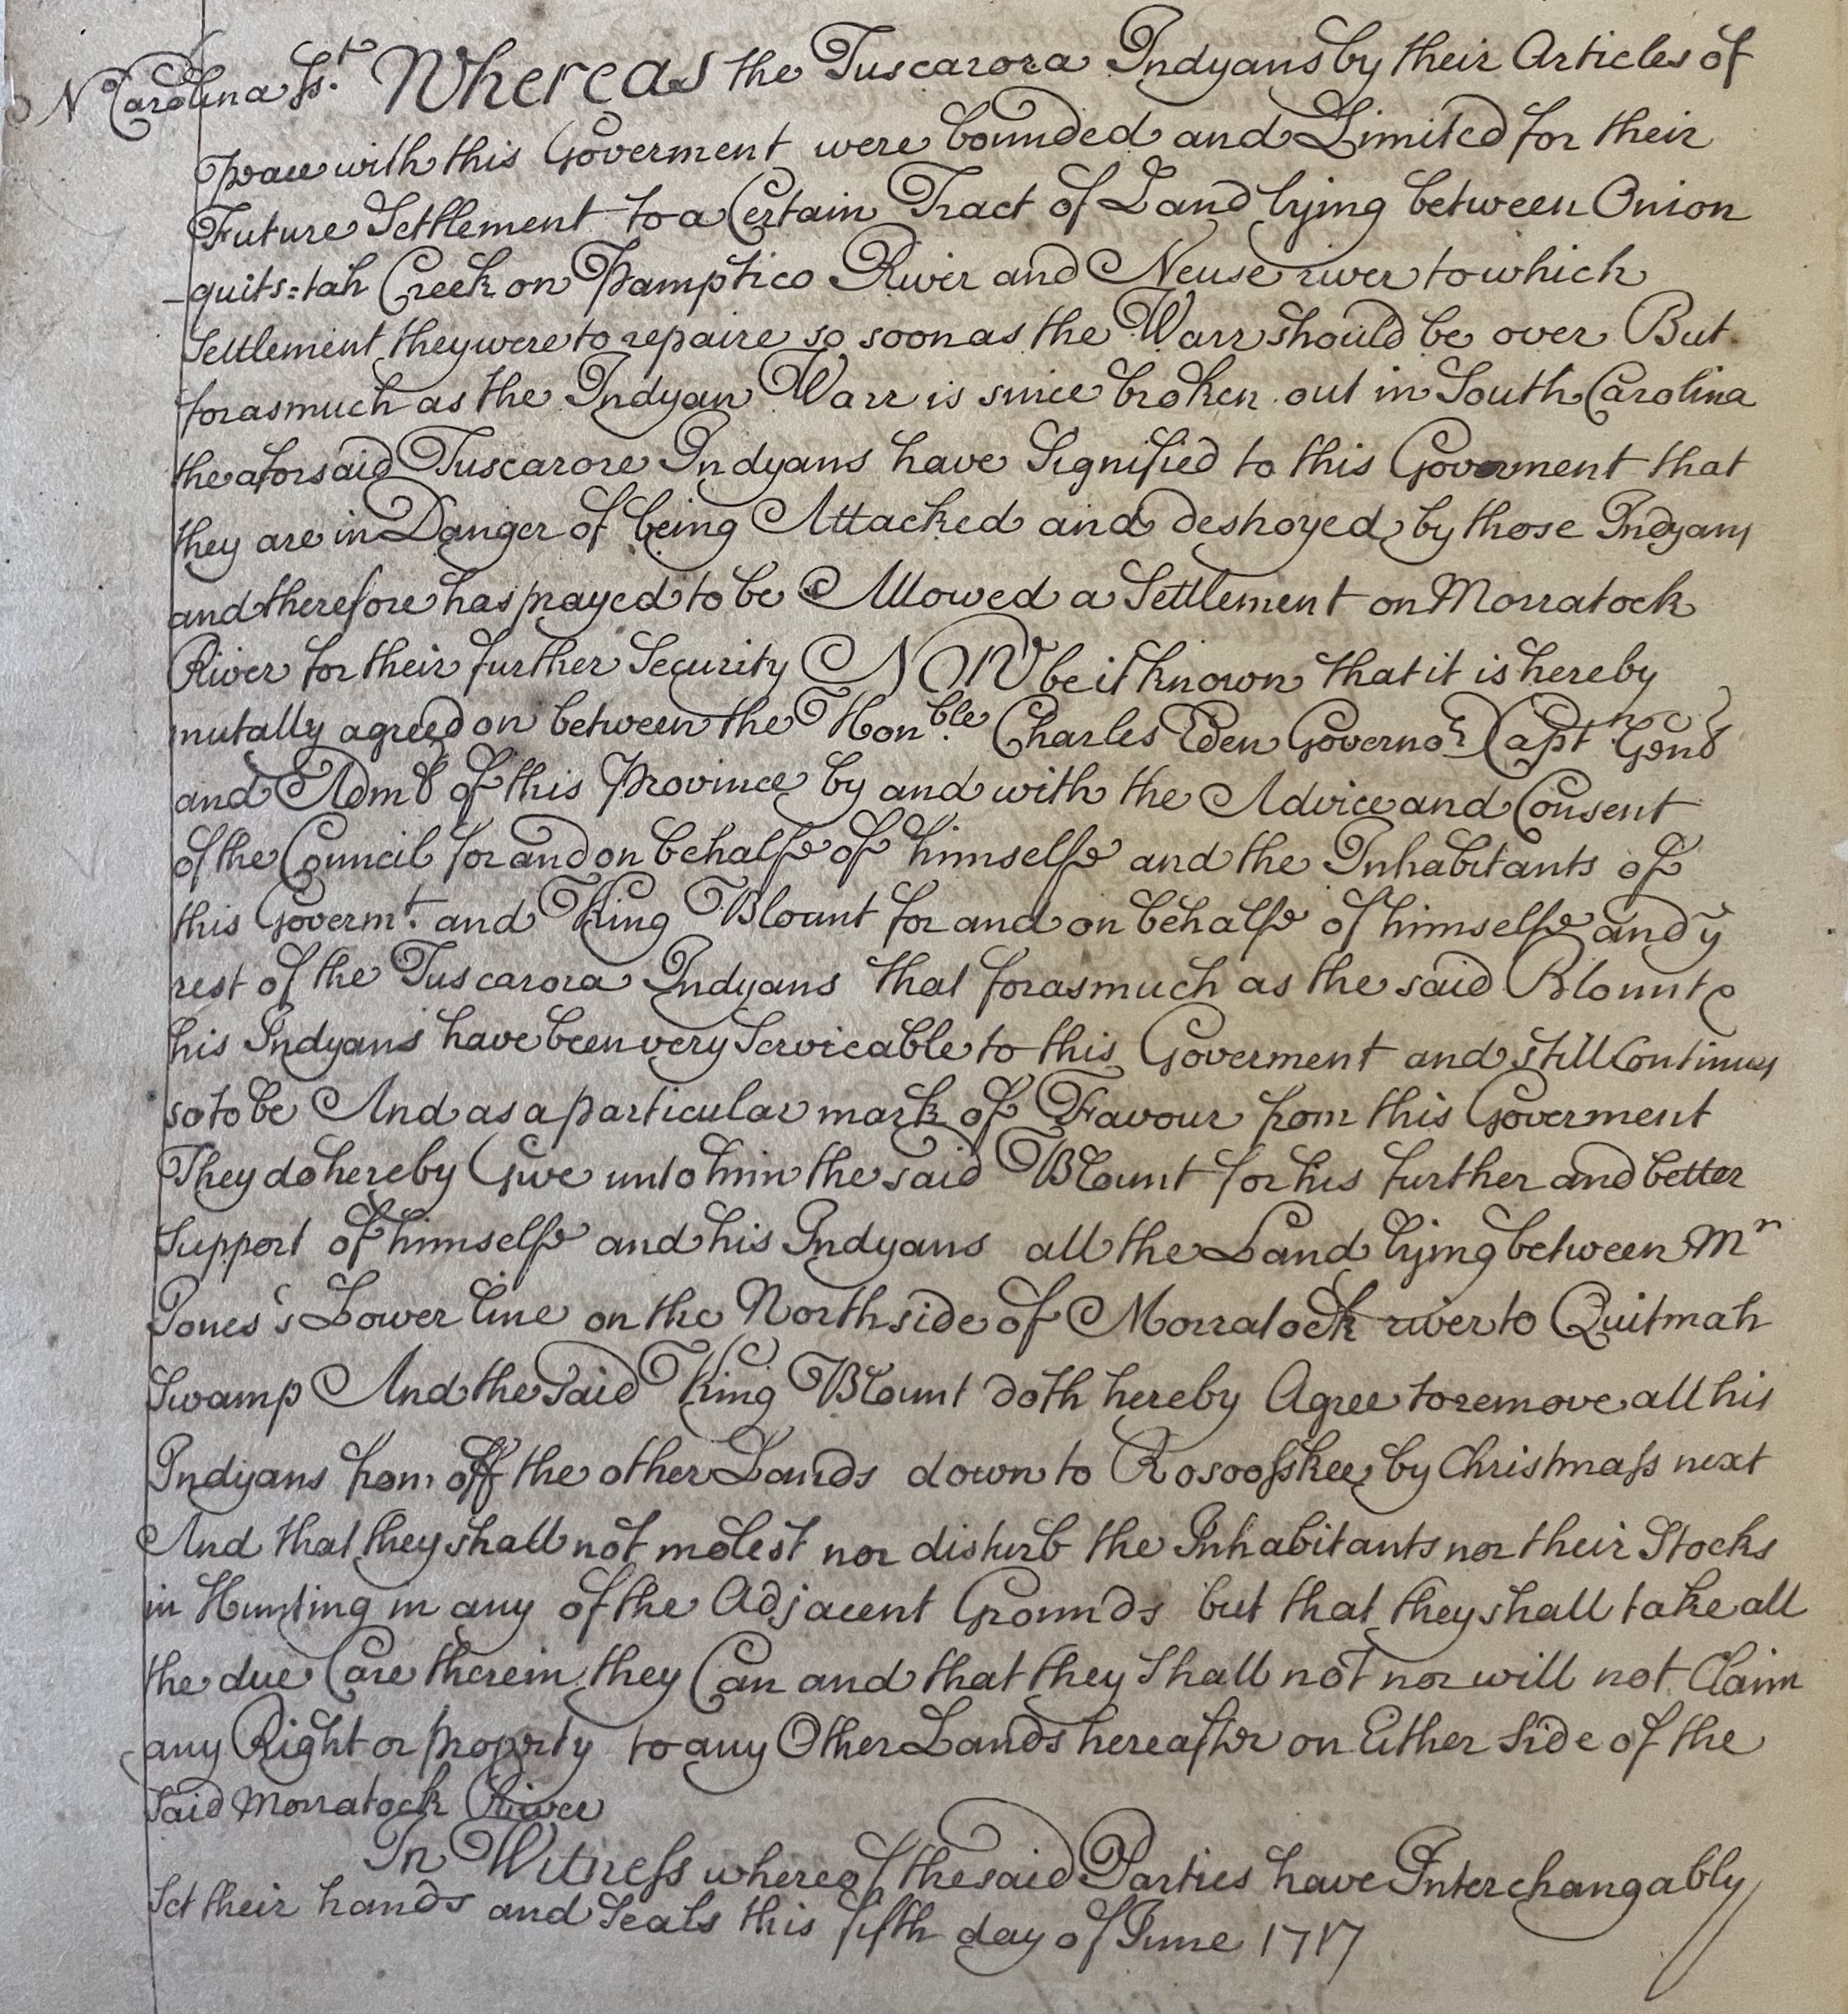 N Carolina ss.t Whereas the Tuscarora Indyans by their Articles of
peace with this Goverment were bounded and Limited for their
Future Settlement to a Certain Tract of Land lying between Onion
-quits=tah Creek on Pamptico River and Neuse river to which
Settlement they were to repaire so soon as the Warr should be over But
forasmuch as the Indyan Warr is since broken out in South Carolina
the aforsaid Tuscarore Indyans have Signified to this Goverment that
they are in Danger of being Attacked and destroyed by those Indyans
and therefore has prayed to be Allowed a Settlement on Morratock
River for their further Security NOW be it known that it is hereby
mutally agreed on between the Hon.ble Charles Eden Governor Capt. Genll
and Admll of this Province by and with the Advice and Consent
of the Council for and on behalfe of himselfe and the Inhabitants of
this Goverm.t and King Blount for and on behalfe of himselfe and ye
rest of the Tuscarora Indyans that forasmuch as the said Blount &
his Indyans have been very Servicable to this Goverment and still Continues
so to be And as a particular mark of Favour from this Goverment
They do hereby Give unto him the said Blount for his further and better
Support of himselfe and his Indyans all the Land lying between Mr
Jones's Lower line on the North side of Morratock river to Quitmah
Swamp And the said King Blount doth hereby Agree to remove all his
Indyans from off the other Lands down to Rosoosskee by Christmass next
And that they shall not molest nor disturb the Inhabitants nor their Stocks
in Hunting in any of the Adjacent Grounds but that they shall take all
the due Care therein they Can and that they shall not nor will not Claim
any Right or property to any Other Lands hereafter on Either Side of the
Said Morratock River
In Witness whereof the said Parties have Interchangably
Set their hands and Seals this fifth day of June 1717